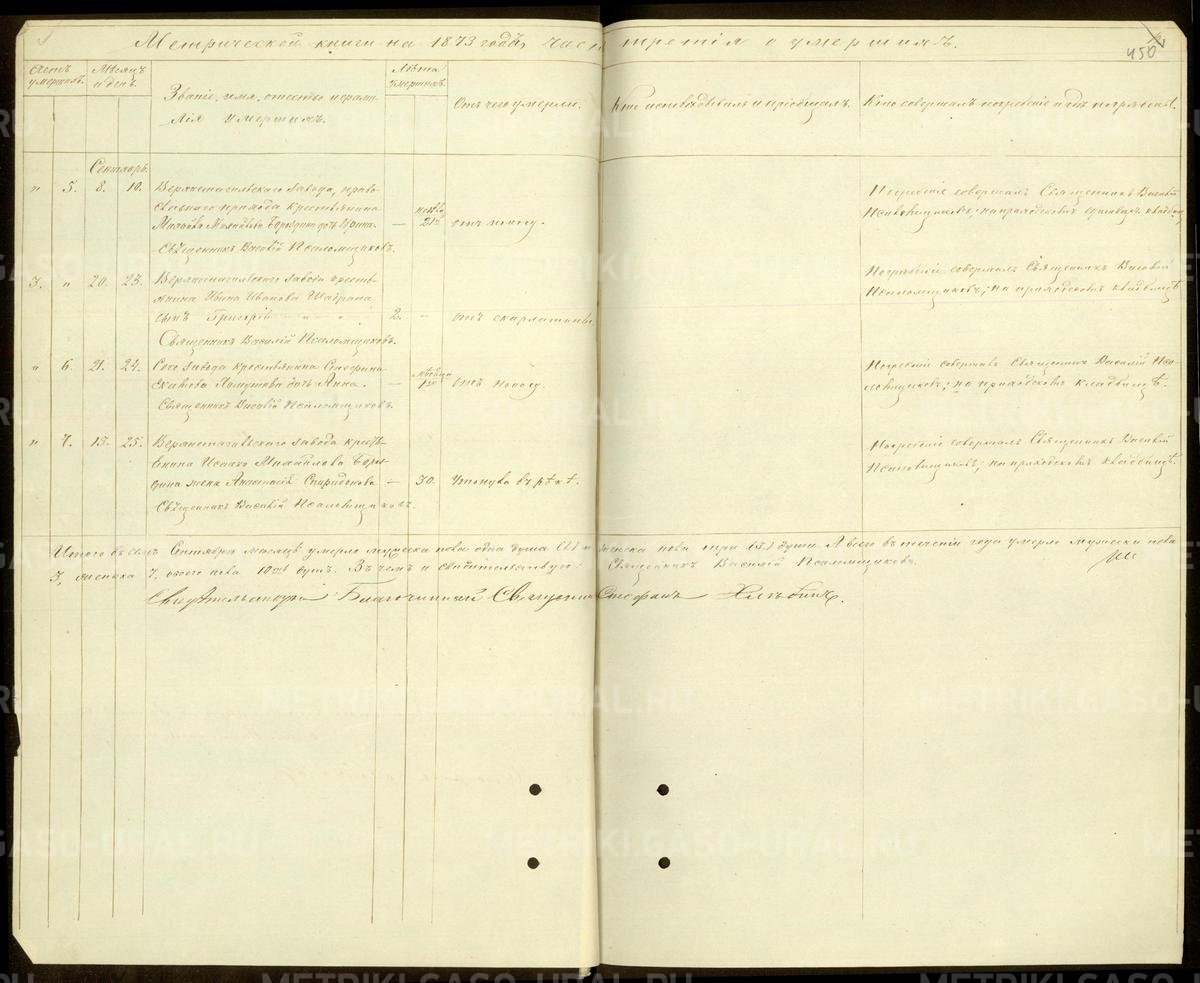 Метрической книги на 1873 годъ, часть третія о умершихъ.
450
Счетъ умершихъ.
Мѣсяцъ и день.
Званіе, имя, отчество и фами-
лія умершихъ.
Лѣта умершихъ.
Отъ чего умерли.
Кто исповѣдывалъ и пріобщалъ.
Кто совершалъ погребеніе и гдѣ погребены.
Сентябрь.
" 5. 8. 10. Верхнетагильскаго завода, право-
славнаго прихода крестьянина
дочь Ирина. — 21 отъ поносу.
Священникъ Василій Псаломщиковъ.
Погребеніе совершалъ Священникъ Василій
Псаломщиковъ; на приходскомъ кладбищѣ
3. " 20. 23. Верхнетагильскаго завода кресть-
янина Ивана Иванова
сынъ Григорій " " 2. — Отъ скарлатины
Священникъ Василій Псаломщиковъ.
Погребеніе совершалъ Священникъ Василій
Псаломщиковъ; на приходскомъ кладбищѣ
" 6. 21. 24. Сего завода крестьянина
дочь Анна. — Отъ поносу.
Священникъ Василій Псаломщиковъ.
Погребеніе совершалъ Священникъ Василій Пса-
ломщиковъ; на приходскомъ кладбищѣ.
" 7. 25. Верхнетагильскаго завода кресть-
янина Исаака Михайлова Боро-
дина жена Анастасія Спиридонова — 30. Утонула въ рѣкѣ.
Священникъ Василій Псаломщиковъ.
Погребеніе совершалъ Священникъ Василій
Псаломщиковъ; на приходскомъ кладбищѣ.
Итого въ семъ Сентябрѣ мѣсяцѣ умерло мужеска пола одна душа (1.) и женска пола три (3.) души. А всего въ теченіи года умерло мужеска пола
3, женска 7, обоего пола 10ть душъ. Въ чемъ и свидѣтельствую: Священникъ Василій Псаломщиковъ.
Свидѣтельствую Благочинный Священникъ Стефанъ Хлѣбинъ.
METRIKI.GASO-URAL.RU